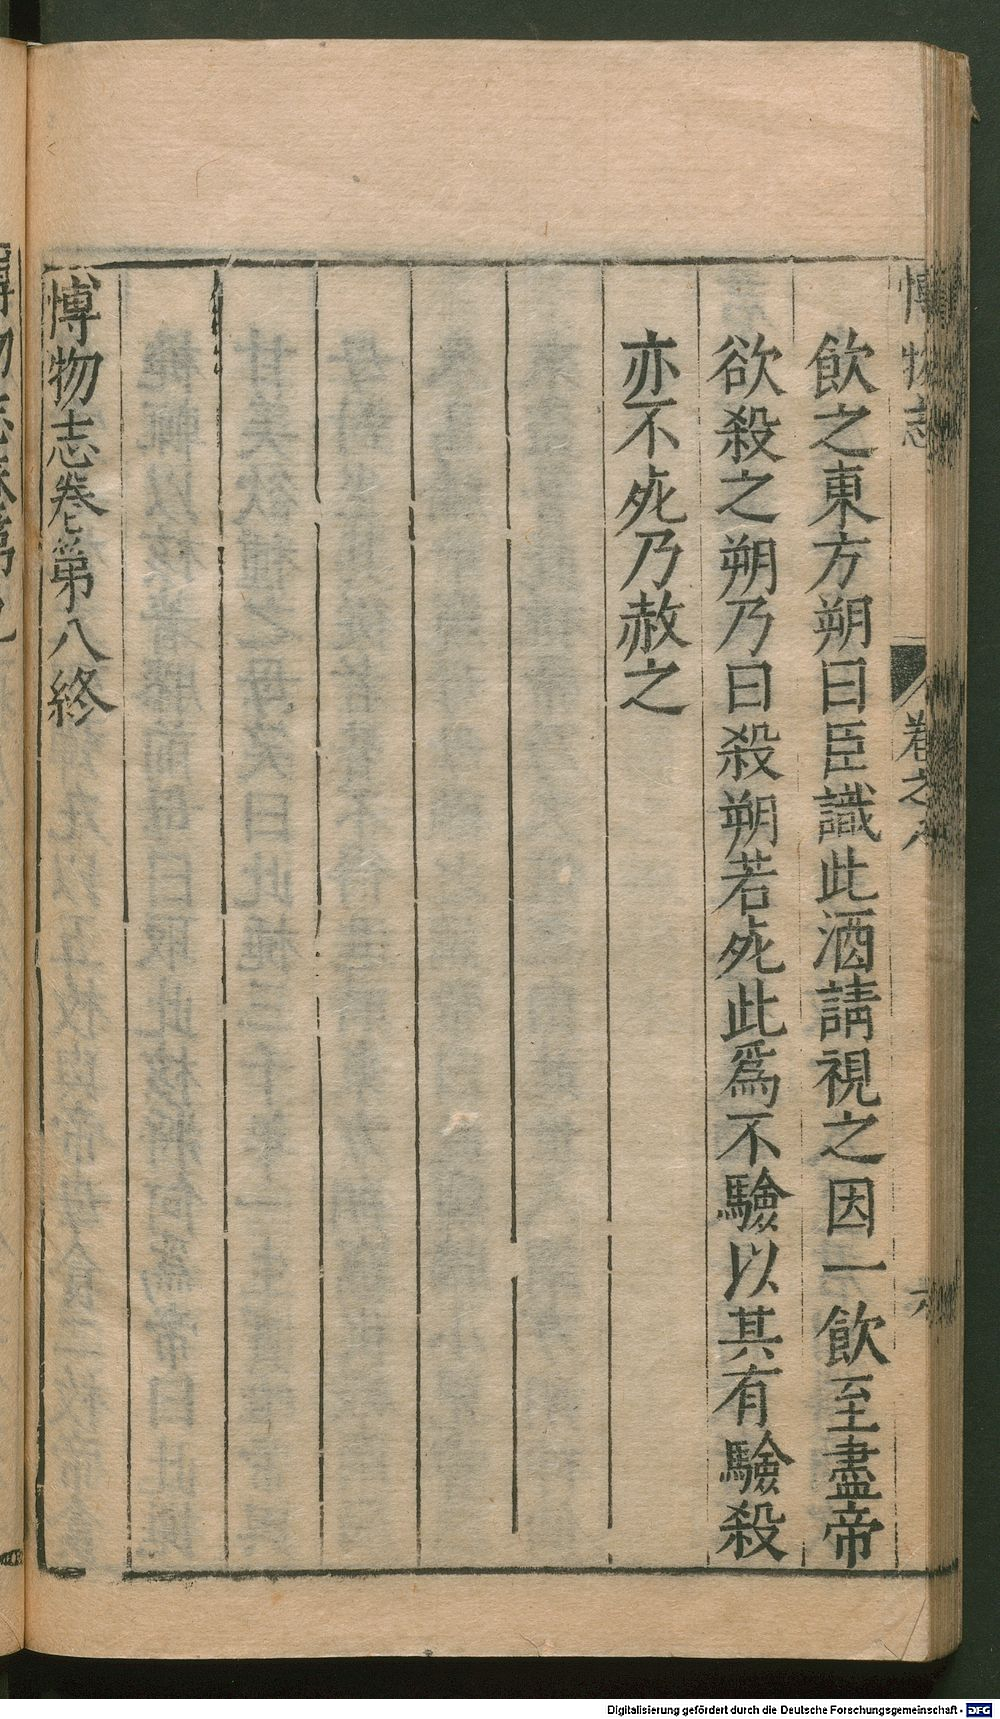 博物志
卷之八
六
飲之東方朔曰臣識此酒請視之因一飲至盡帝
欲殺之朔乃曰殺朔若死此爲不驗以其有驗殺
亦不死乃赦之
博物志卷第八終
Digitalisierung gefördert durch die Deutsche Forschungsgemeinschaft - DFG